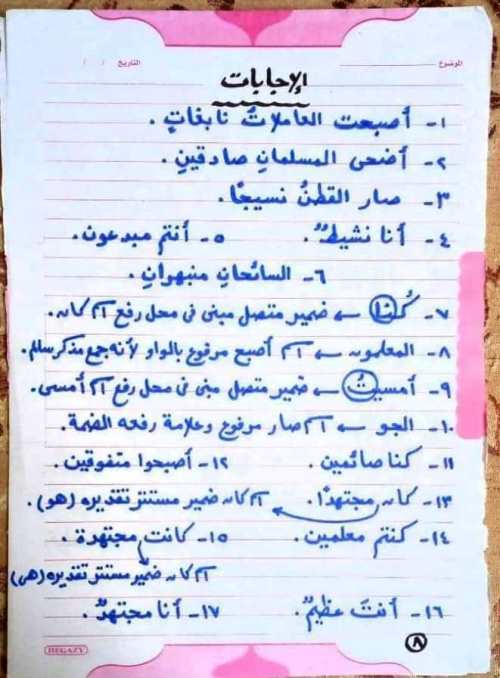 الموضوع
التاريخ / /
الإجابات
١- أصبحت العاملاتُ نابغاتٍ .
٢- أضحى المسلمانِ صادقينِ .
٣- صار القطنُ نسيجًا .
٤- أنا نشيطٌ .
٥- أنتم مبدعون .
٦- السائحانِ منبهرانِ .
٧- كُنا ← ضمير متصل مبنى فى محل رفع اسم كان .
٨- المعلمون ← اسم أصبح مرفوع بالواو لأنه جمع مذكر سالم .
٩- أمسيتُ ← ضمير متصل مبنى فى محل رفع اسم أمسى .
١٠- الجو ← اسم صار مرفوع وعلامة رفعه الضمة .
١١- كنا صائمين .
١٢- أصبحوا متفوقين .
١٣- كان مجتهدًا . اسم كان ضمير مستتر تقديره (هو) .
١٤- كنتم معلمين .
١٥- كانت مجتهدة .
اسم كان ضمير مستتر تقديره (هى)
١٦- أنتَ عظيمٌ .
١٧- أنا مجتهدٌ .
٨
HEGAZY